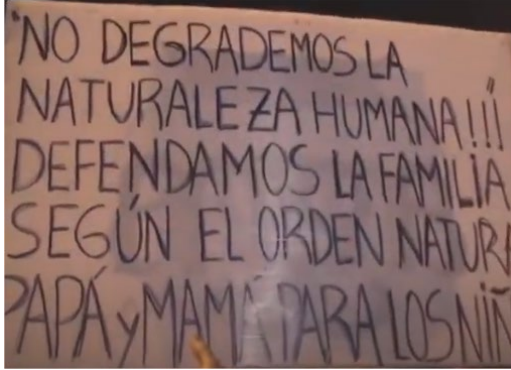 "NO DEGRADEMOS LA
NATURALEZA HUMANA!!!
DEFENDAMOS LA FAMILIA
SEGÚN EL ORDEN NATURA
PAPÁ y MAMÁ PARA LOS NIÑ